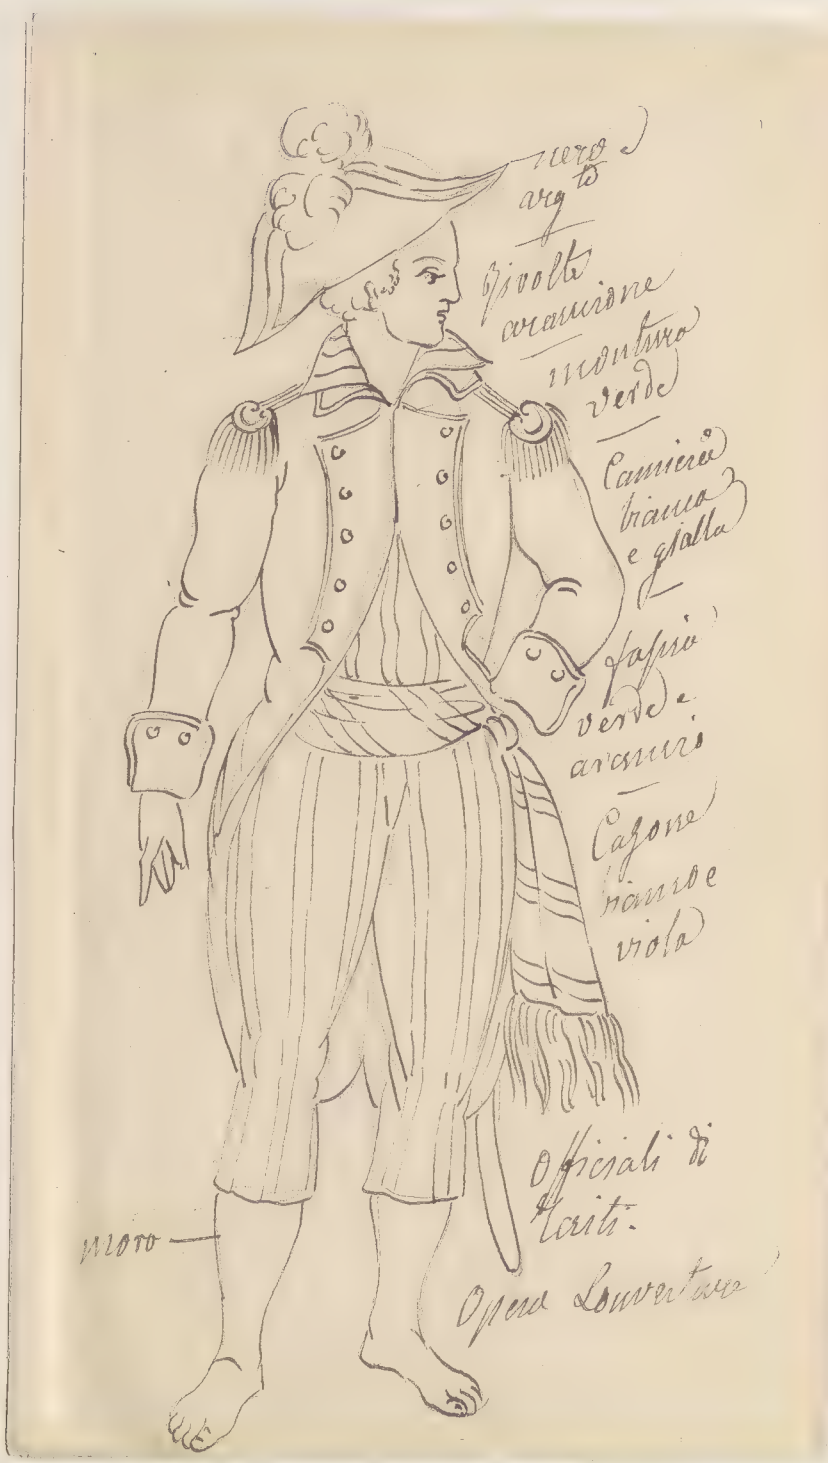 nero
arg.to
Rivolte
arancione
montura
verde
Camiciè
bianca
e gialla
fascia
verde e
arancio
Cazone
bianco e
viola
Officiali di
Taiti.
moro
Opera Louverture